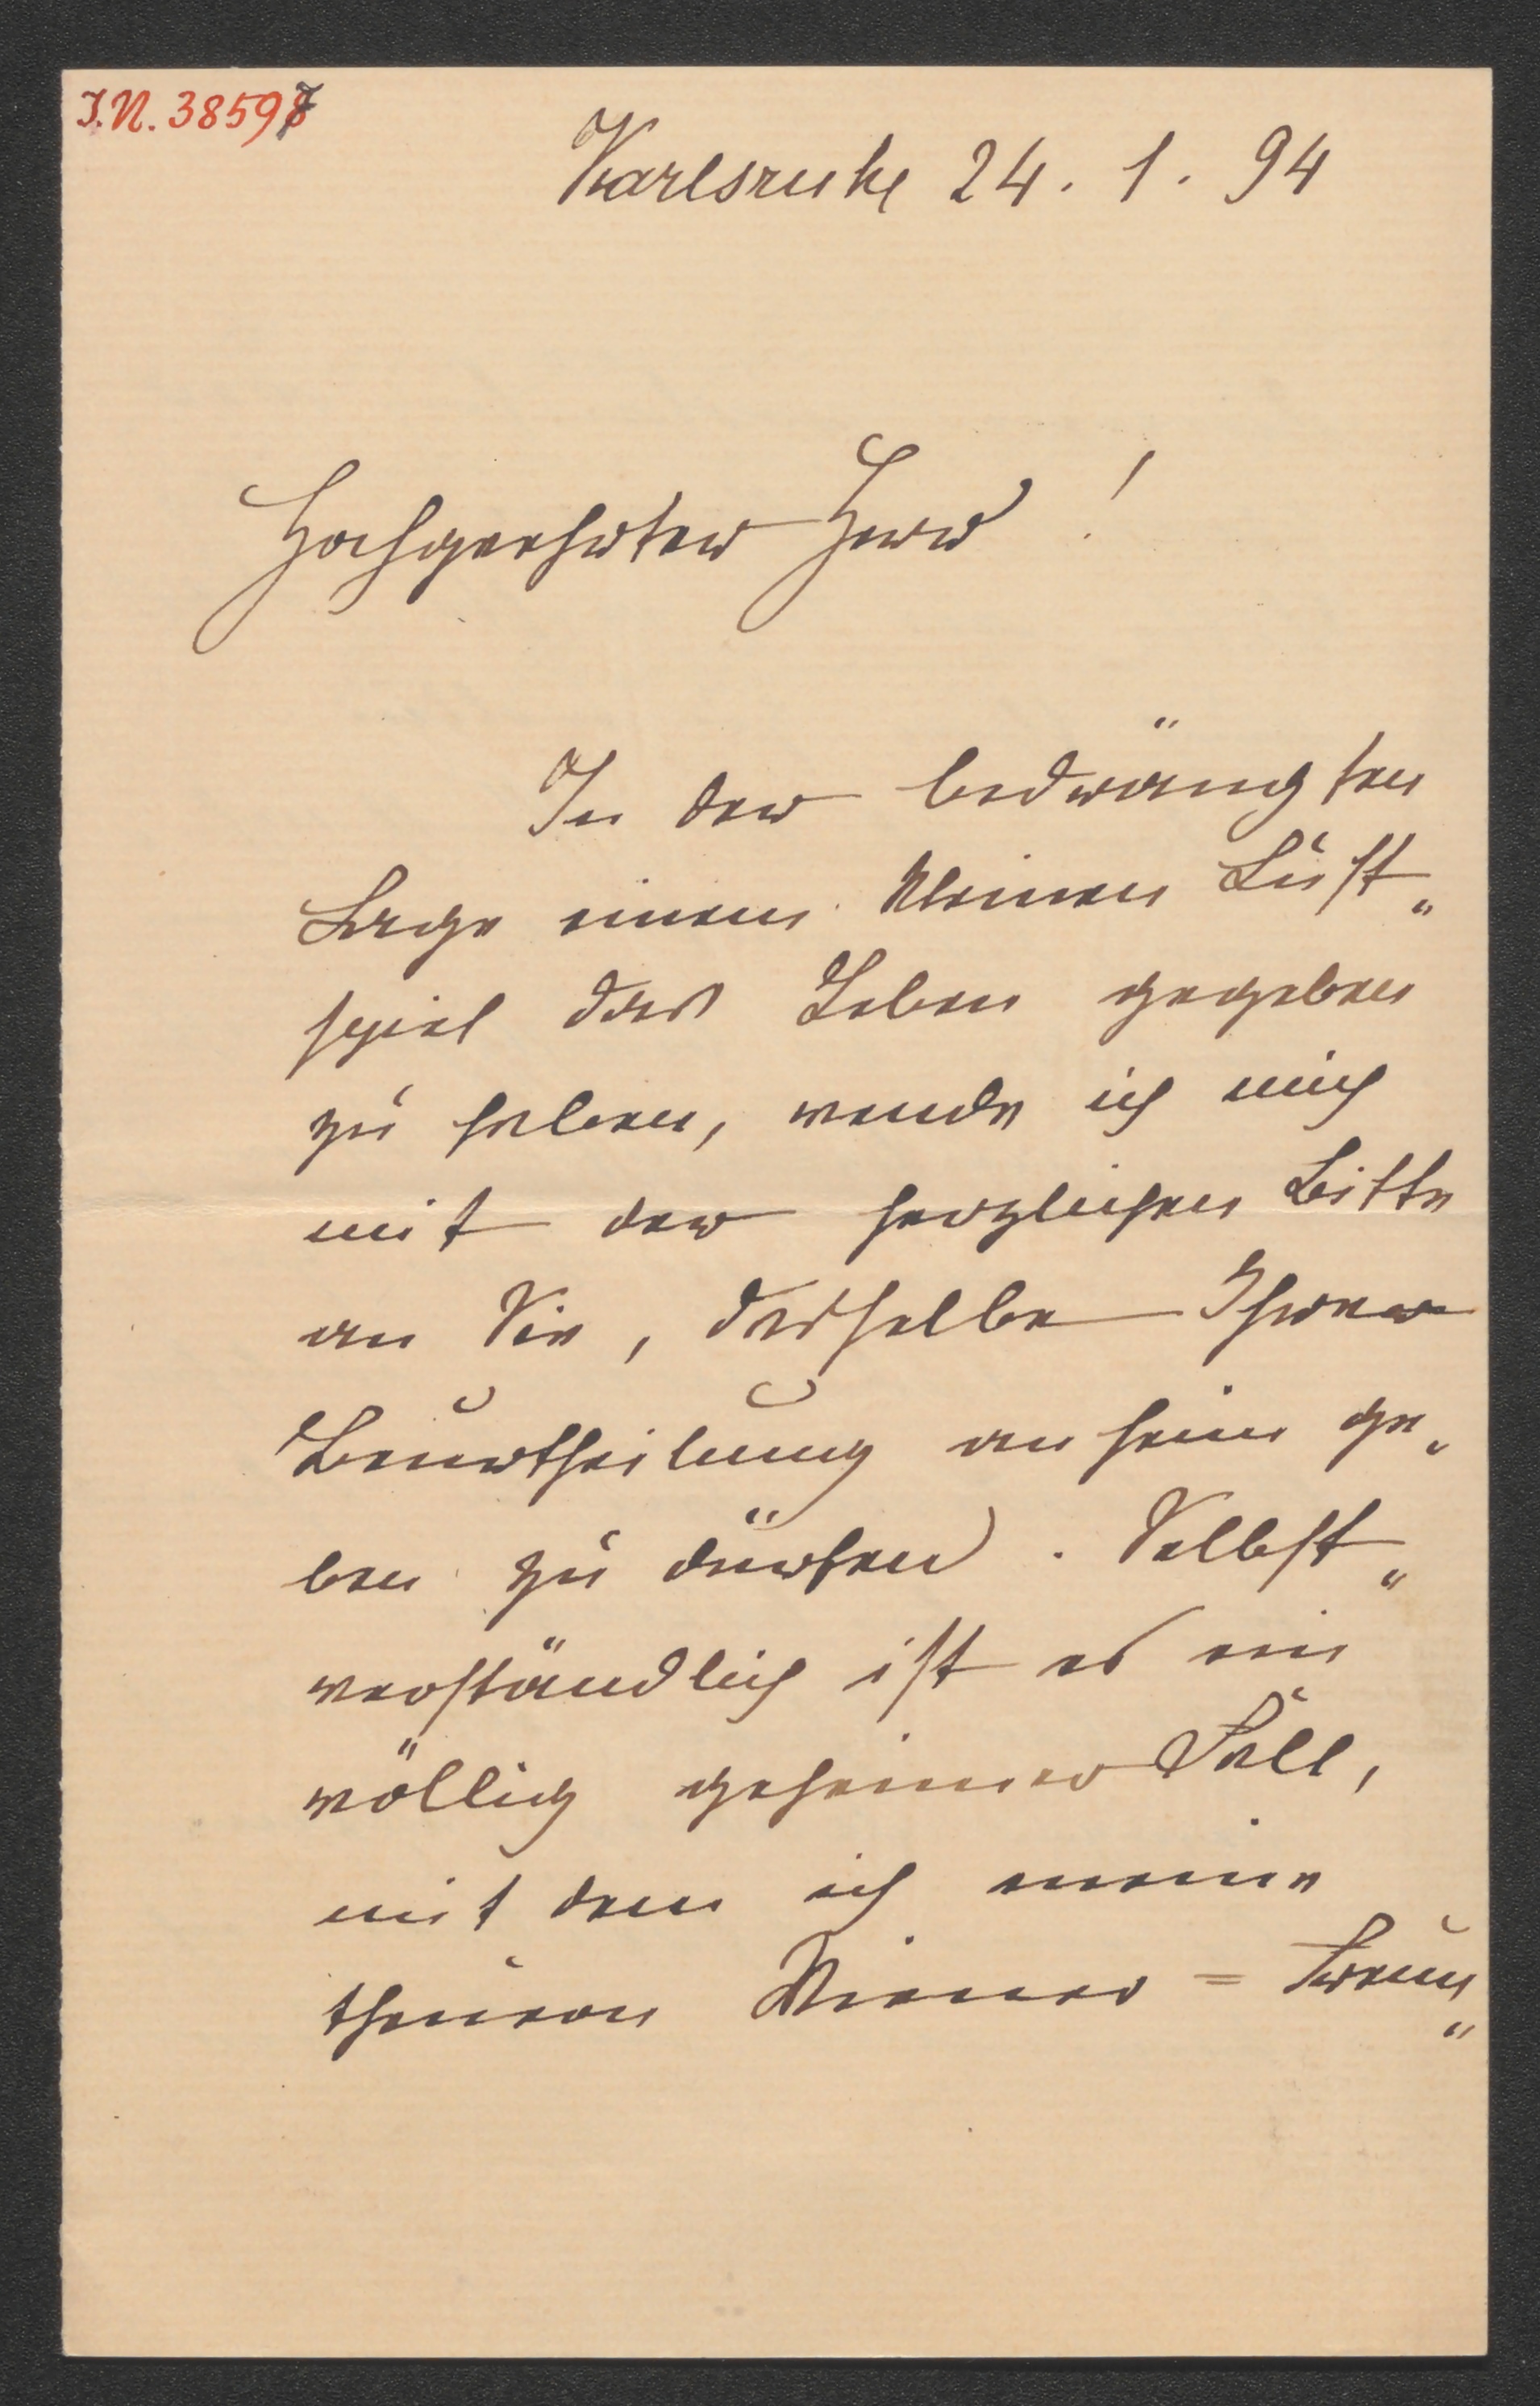 I.N. 38597
Karlsruhe 24. 1. 94
Hochgeehrter Herr!
In der bedrängten
Lage einem kleinen Lust„
spiel das Leben gegeben
zu haben, wende ich mich
mit der herzlichen Bitte
an Sie, dasselbe Ihrer
Beurtheilung anheim ge„
ben zu dürfen. Selbst„
verständlich ist es ein
völlig geheimer Fall,
mit dem ich meine
theuren Wiener = Freun„